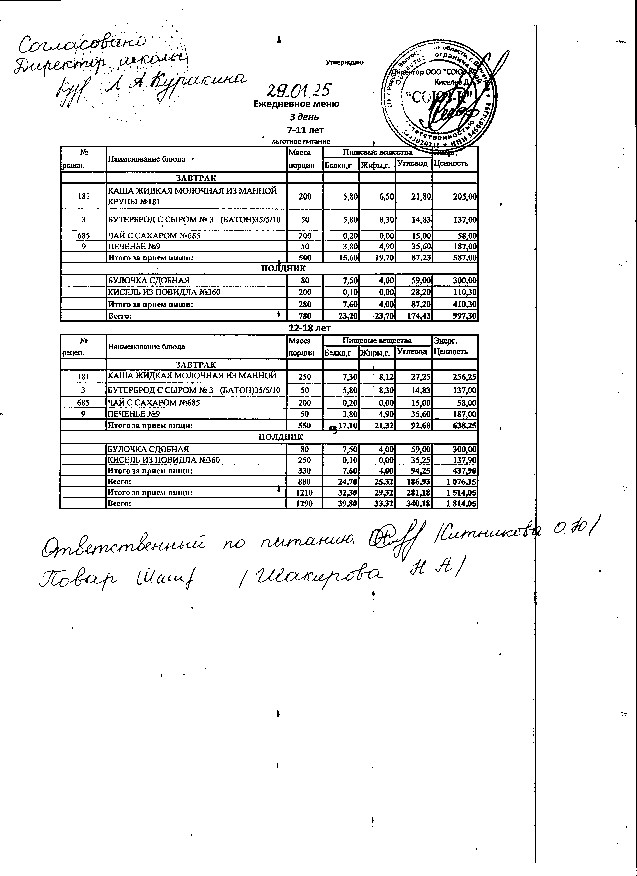 Согласовано
Директор школы
Л А Куракина
Утверждаю
Директор ООО "СОЮЗ-К"
Киселев Д.
"СОЮЗ-К"
29.01.25
Ежедневное меню
3 день
7-11 лет
льготное питание
№ рецеп. Наименование блюда Масса порции Пищевые вещества Энерг. Ценность
Белки,г Жиры,г. Углевод
ЗАВТРАК
181 КАША ЖИДКАЯ МОЛОЧНАЯ ИЗ МАННОЙ КРУПЫ №181 200 5,80 6,50 21,80 205,00
3 БУТЕРБРОД С СЫРОМ № 3 (БАТОН)35/5/10 50 5,80 8,30 14,83 137,00
685 ЧАЙ С САХАРОМ №685 200 0,20 0,00 15,00 58,00
9 ПЕЧЕНЬЕ №9 50 3,80 4,90 35,60 187,00
Итого за прием пищи: 500 15,60 19,70 87,23 587,00
ПОЛДНИК
БУЛОЧКА СДОБНАЯ 80 7,50 4,00 59,00 300,00
КИСЕЛЬ ИЗ ПОВИДЛА №360 200 0,10 0,00 28,20 110,30
Итого за прием пищи: 280 7,60 4,00 87,20 410,30
Всего: 780 23,20 23,70 174,43 997,30
12-18 лет
№ рецеп. Наименование блюда Масса порции Пищевые вещества Энерг. Ценность
Белки,г Жиры,г. Углевод
ЗАВТРАК
181 КАША ЖИДКАЯ МОЛОЧНАЯ ИЗ МАННОЙ 250 7,30 8,12 27,25 256,25
3 БУТЕРБРОД С СЫРОМ № 3 (БАТОН)35/5/10 50 5,80 8,30 14,83 137,00
685 ЧАЙ С САХАРОМ №685 200 0,20 0,00 15,00 58,00
9 ПЕЧЕНЬЕ №9 50 3,80 4,90 35,60 187,00
Итого за прием пищи: 550 17,10 21,32 92,68 638,25
ПОЛДНИК
БУЛОЧКА СДОБНАЯ 80 7,50 4,00 59,00 300,00
КИСЕЛЬ ИЗ ПОВИДЛА №360 250 0,10 0,00 35,25 137,90
Итого за прием пищи: 330 7,60 4,00 94,25 437,90
Всего: 880 24,70 25,32 186,93 1 076,15
Итого за прием пищи: 1210 32,30 29,32 281,18 1 514,05
Всего: 1290 39,80 33,32 340,18 1 814,05
Ответственный по питанию /Китникова О.Ю/
Повар /Шакирова Н А/